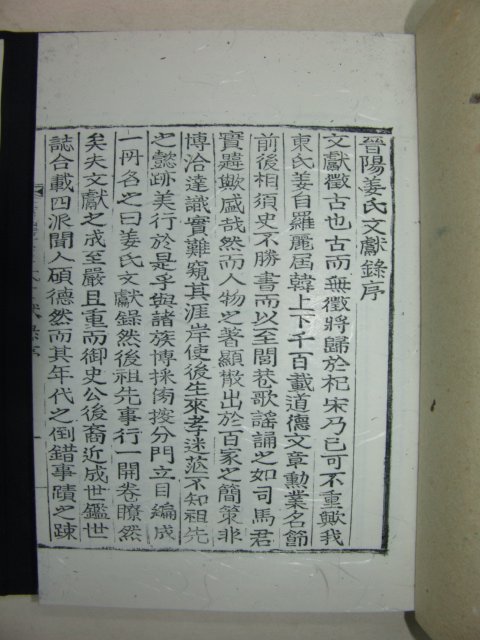 晉陽姜氏文獻錄序
文獻徵古也古而無徵將歸於杞宋乃已可不重歟我
東氏姜自羅麗屆韓上下千百載道德文章勳業名節
前後相須史不勝書而以至閭巷歌謠誦之如司馬君
實韙歟盛哉然而人物之著顯散出於百家之簡策非
博洽達識實難窺其涯岸使後生來孝迷茫不知祖先
之懿跡美行於是乎與諸族博採傍按分門立目編成
一冊名之曰姜氏文獻錄然後祖先事行一開卷瞭然
矣夫文獻之成至嚴且重而御史公後裔近成世鑑世
誌合載四派聞人碩德然而其年代之倒錯事蹟之踈